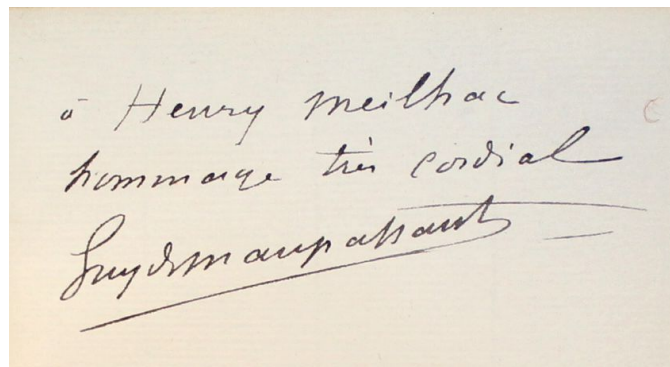 à Henry Meilhac
hommage très cordial
Guy de Maupassant